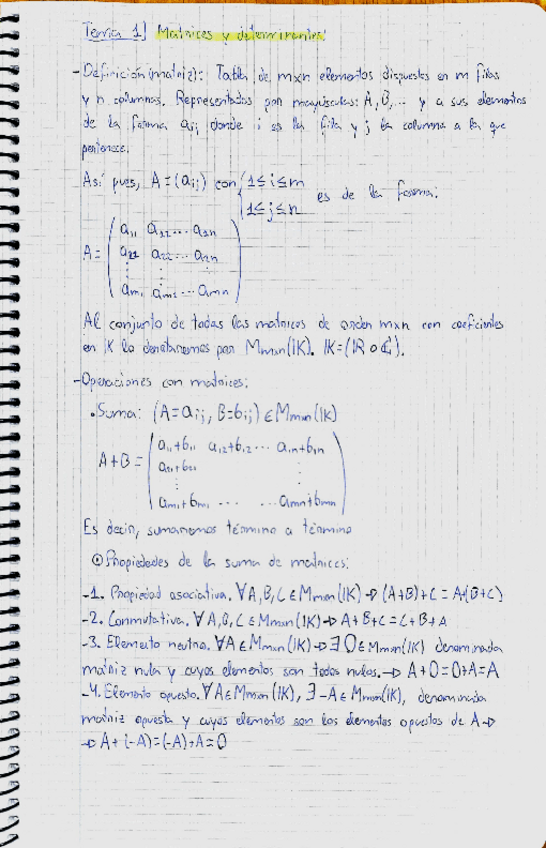 Tema 1] Matrices y determinantes:
- Definición (matriz): Tabla de mxn elementos dispuestos en m filas
y n columnas. Representadas por mayúsculas: A, B, ... y a sus elementos
de la forma aij donde i es la fila y j la columna a la que
pertenece.
Así pues, A = (aij) con { 1≤i≤m
1≤j≤n es de la forma:
A = ( a11 a12 ... a1n
a21 a22 ... a2n
⋮ ⋮ ⋮
am1 am2 ... amn )
Al conjunto de todas las matrices de orden mxn con coeficientes
en IK lo denotaremos por Mmxn(IK). IK = (IR o ℂ).
- Operaciones con matrices:
• Suma: (A=aij, B=bij) ∈ Mmxn(IK)
A+B = ( a11+b11 a12+b12 ... a1n+b1n
a21+b21 ⋮
⋮ ⋮
am1+bm1 ... ... amn+bmn )
Es decir, sumaremos término a término
⊙ Propiedades de la suma de matrices:
-1. Propiedad asociativa. ∀A,B,C ∈ Mmxn(IK) → (A+B)+C = A+(B+C)
-2. Conmutativa. ∀A,B,C ∈ Mmxn(IK) → A+B+C = C+B+A
-3. Elemento neutro. ∀A ∈ Mmxn(IK) → ∃ O ∈ Mmxn(IK) denominada
matriz nula y cuyos elementos son todos nulos. → A+O = O+A = A
-4. Elemento opuesto. ∀A ∈ Mmxn(IK), ∃ -A ∈ Mmxn(IK), denominada
matriz opuesta y cuyos elementos son los elementos opuestos de A →
→ A+(-A) = (-A)+A = O